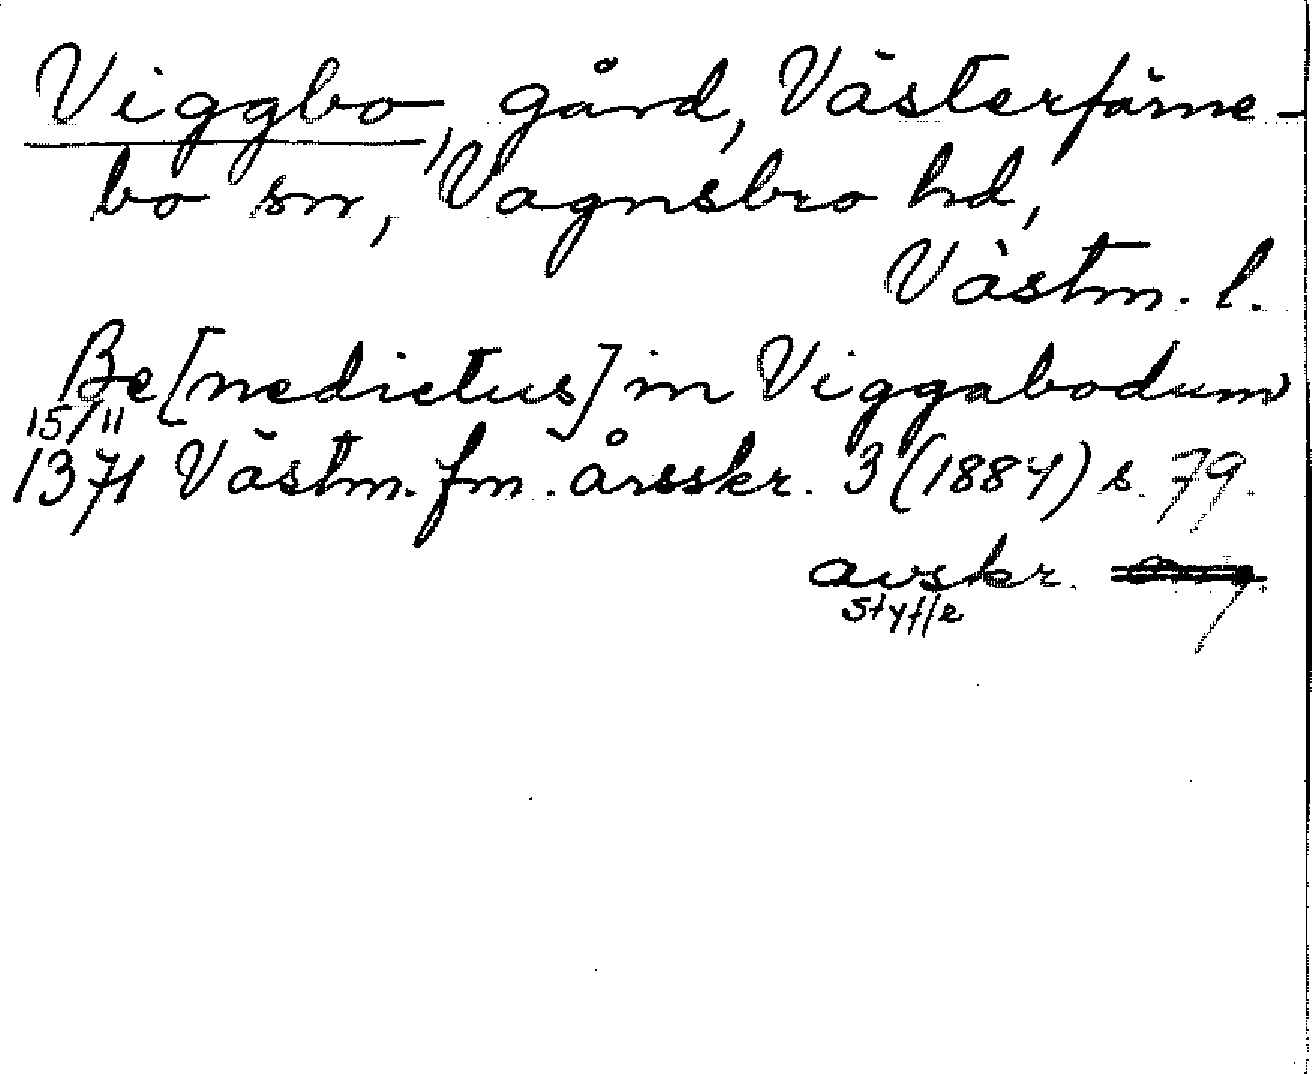 Viggbo, gård, Västerfärne-
bo sn, Vagnsbro hd,
Västm. l.
Be[nedictus] in Viggabodum
15/11
1371 Västm. fm. årsskr. 3 (1884) s. 79.
avskr.
Styffe